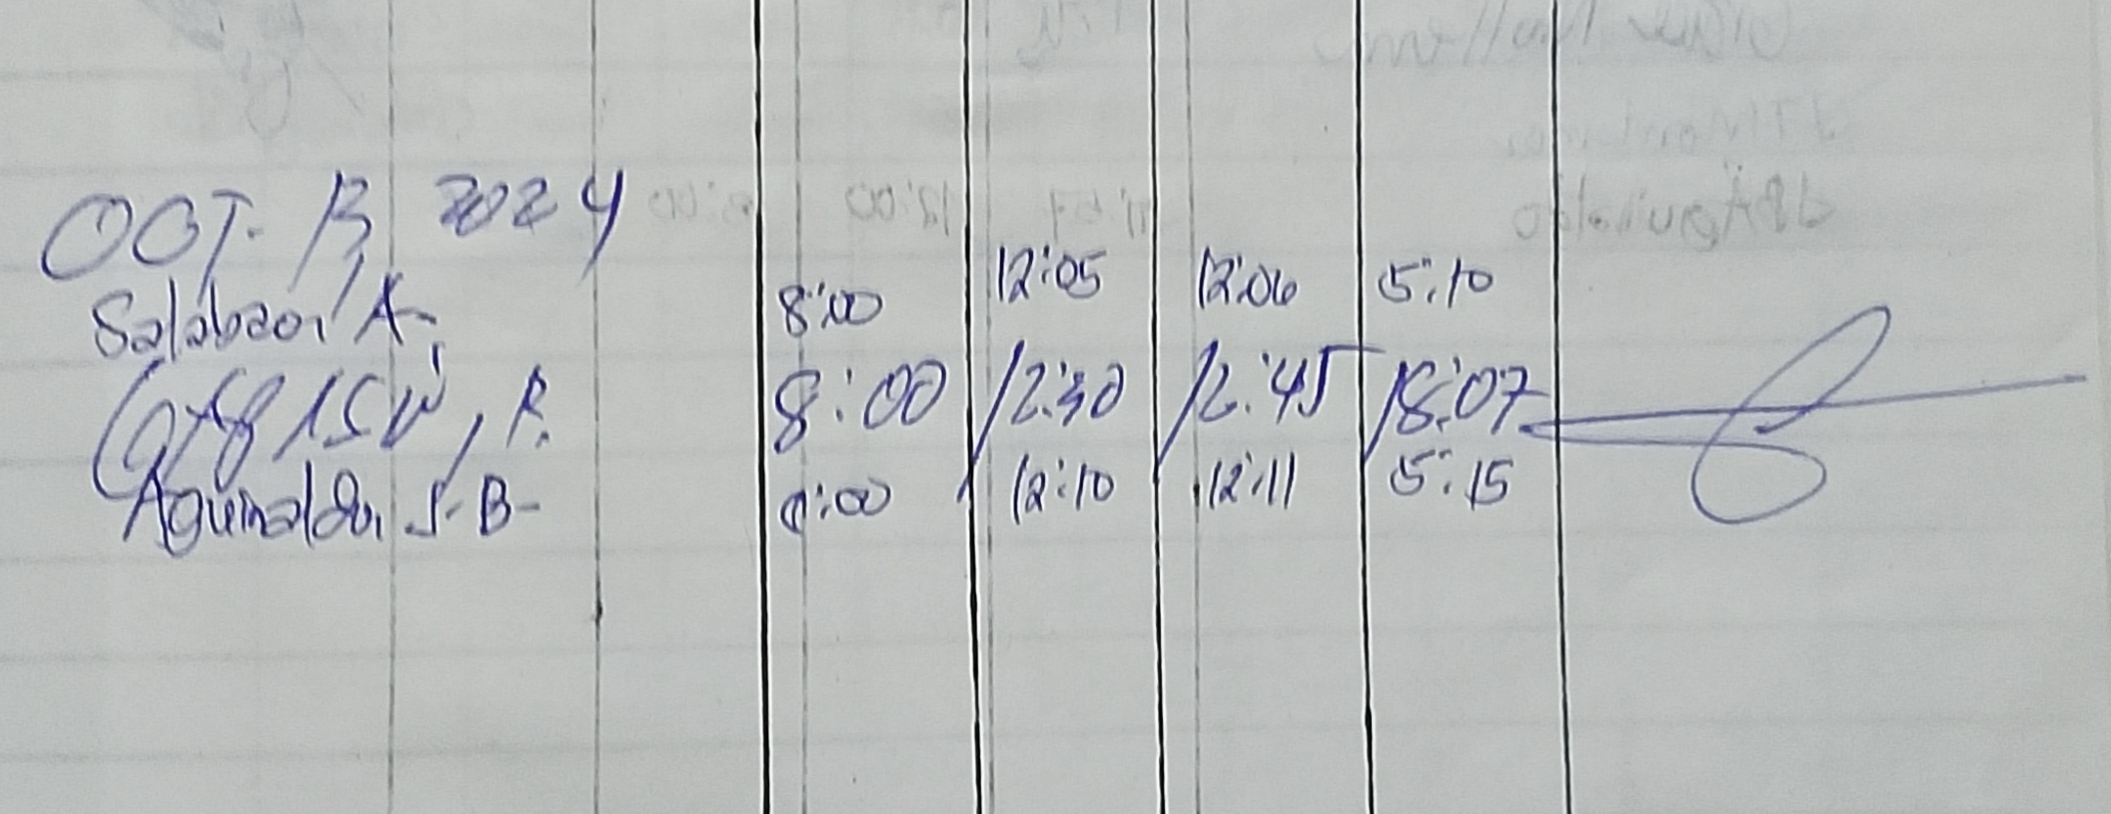 OCT. 13, 2024
Salabao, A. 8:00 12:05 12:06 5:10
R. 8:00 12:40 12:45 18:07
Aguinaldo, J.B. 8:00 12:10 12:11 5:15